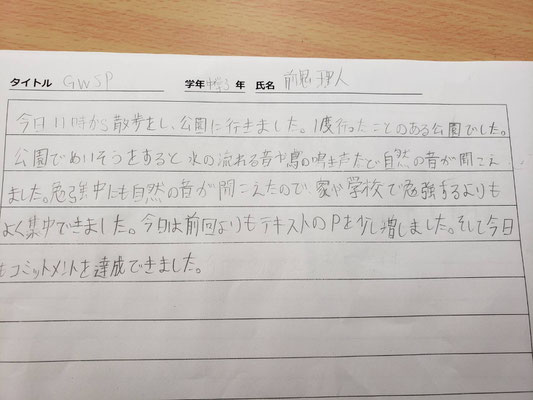 タイトル GWSP 学年 中学3 年 氏名 前田 理人
今日11時から散歩をし、公園に行きました。1度行ったことのある公園でした。
公園でめいそうをすると水の流れる音や鳥の鳴き声など自然の音が聞こえ
ました。勉強中にも自然の音が聞こえたので、家や学校で勉強するよりも
よく集中できました。今日は前回よりもテキストのPを少し増しました。そして今日
もコミットメントを達成できました。